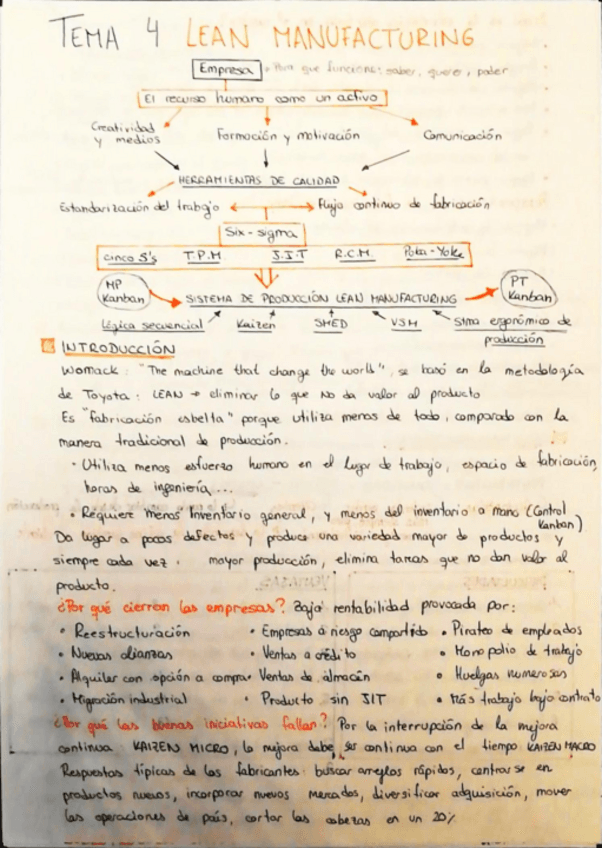 TEMA 4 LEAN MANUFACTURING
Empresa • Para que funcione: saber, querer, poder
El recurso humano como un activo
Creatividad y medios Formación y motivación Comunicación
HERRAMIENTAS DE CALIDAD
Estandarización del trabajo Flujo continuo de fabricación
Six-sigma
Cinco S's T.P.M. J.I.T R.C.M. Poka-Yoke
MP Kanban SISTEMA DE PRODUCCIÓN LEAN MANUFACTURING PT Kanban
Lógica secuencial Kaizen SMED VSM Stma ergonómico de producción
INTRODUCCIÓN
Womack: "The machine that change the world", se basó en la metodología
de Toyota: LEAN → eliminar lo que no da valor al producto
Es "fabricación esbelta" porque utiliza menos de todo, comparado con la
manera tradicional de producción.
• Utiliza menos esfuerzo humano en el lugar de trabajo, espacio de fabricación,
horas de ingeniería...
• Requiere "menos" inventario general, y menos del inventario a mano (Control Kanban)
Da lugar a pocos defectos y produce una variedad mayor de productos y
siempre cada vez mayor producción, elimina tareas que no dan valor al
producto.
¿Por qué cierran las empresas? Baja rentabilidad provocada por:
• Reestructuración • Empresas a riesgo compartido • Pirateo de empleados
• Nuevas alianzas • Ventas a crédito • Monopolio de trabajo
• Alquilar con opción a compra • Ventas de almacén • Huelgas numerosas
• Migración industrial • Producto sin JIT • Más trabajo bajo contrato
¿Por qué las buenas iniciativas fallan? Por la interrupción de la mejora
continua: KAIZEN MICRO, la mejora debe ser continua con el tiempo KAIZEN MACRO
Respuestas típicas de los fabricantes: buscar arreglos rápidos, centrarse en
productos nuevos, incorporar nuevos mercados, diversificar adquisición, mover
las operaciones de país, cortar las cabezas en un 20%